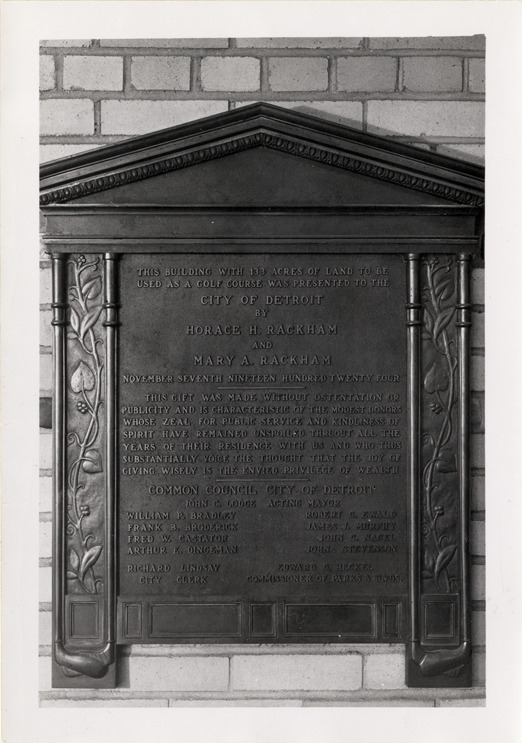 THIS BUILDING WITH 133 ACRES OF LAND TO BE
USED AS A GOLF COURSE WAS PRESENTED TO THE
CITY OF DETROIT
BY
HORACE H. RACKHAM
AND
MARY A. RACKHAM
NOVEMBER SEVENTH NINETEEN HUNDRED TWENTY FOUR
THIS GIFT WAS MADE WITHOUT OSTENTATION OR
PUBLICITY AND IS CHARACTERISTIC OF THE MODEST DONORS
WHOSE ZEAL FOR PUBLIC SERVICE AND KINDLINESS OF
SPIRIT HAVE REMAINED UNSPOILED THRUOUT ALL THE
YEARS OF THEIR RESIDENCE WITH US AND WHO THUS
SUBSTANTIALLY VOICE THE THOUGHT THAT THE JOY OF
GIVING WISELY IS THE ENVIED PRIVILEGE OF WEALTH
COMMON COUNCIL CITY OF DETROIT
JOHN C. LODGE ACTING MAYOR
WILLIAM P. BRADLEY ROBERT G. EWALD
FRANK B. BRODERICK JAMES J. MURPHY
FRED W. CASTATOR JOHN C. NAGEL
ARTHUR E. DINGEMAN JOHN STEVENSON
RICHARD LINDSAY EDWARD G. HECKEL
CITY CLERK COMMISSIONER OF PARKS &